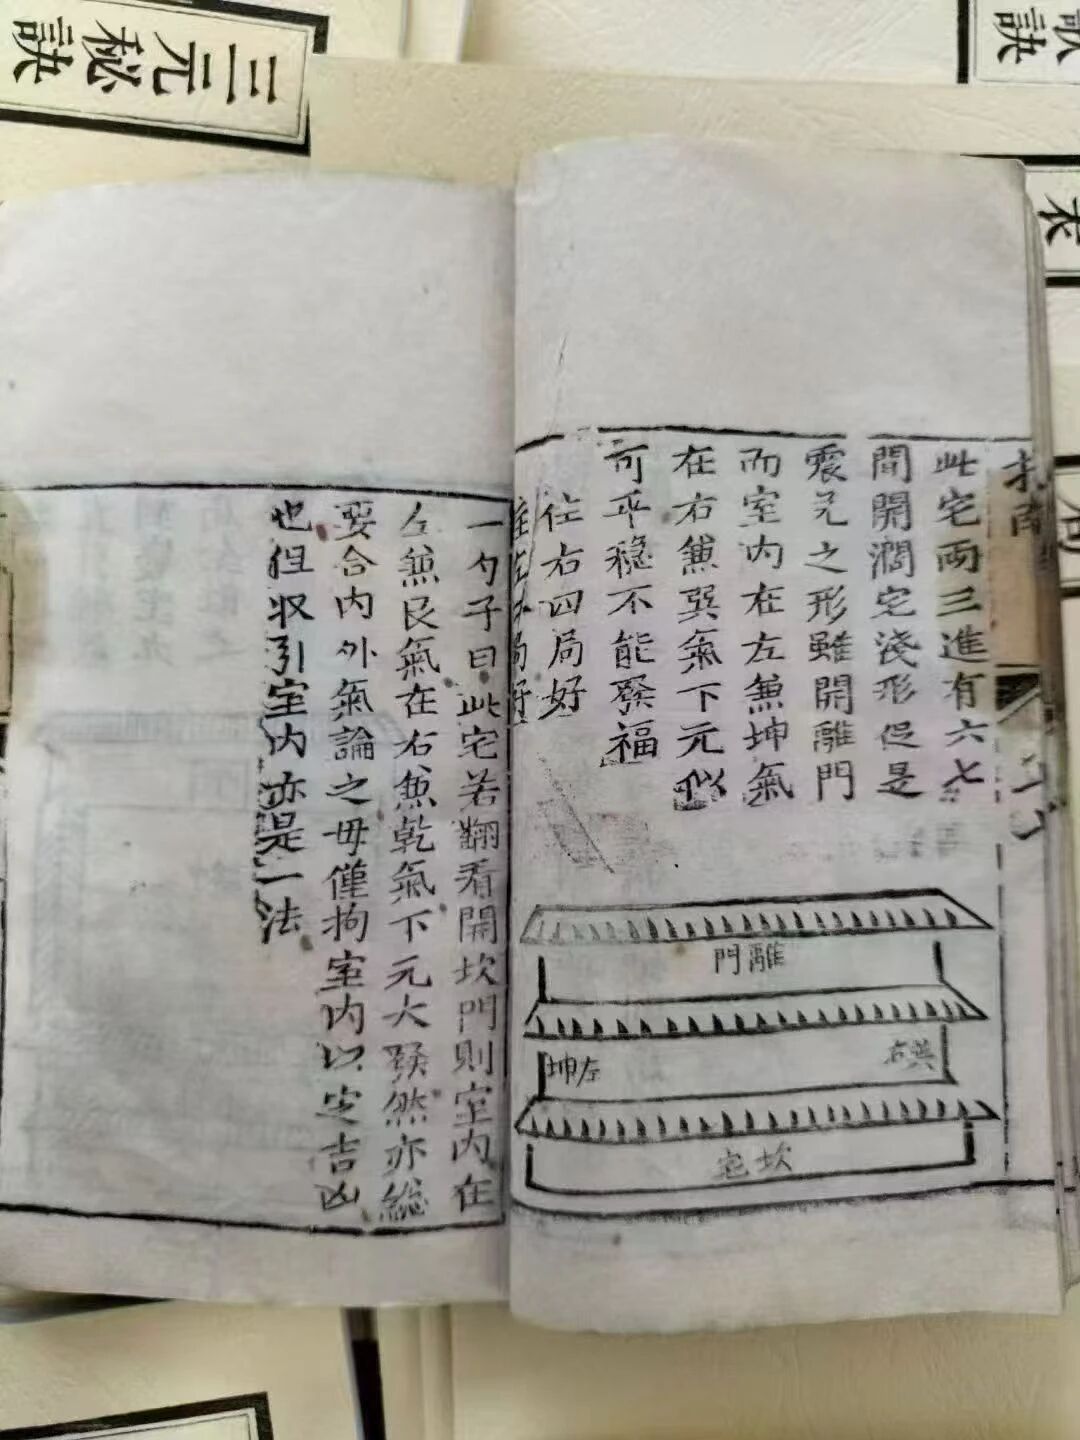 三元秘訣
訣
衣
指南
此宅兩三進有六七
間開濶宅淺形促是
震兄之形雖開離門
而室内在左兼坤氣
在右兼巽氣下元似
可平穩不能發福
住右四局好
一勺子曰此宅若翻看開坎門則室内在
左兼艮氣在右兼乾氣下元大發然亦總
要合内外氣論之毋僅拘室内以定吉凶
也但収引室内亦是一法
離門
左坤
巽右
坎宅